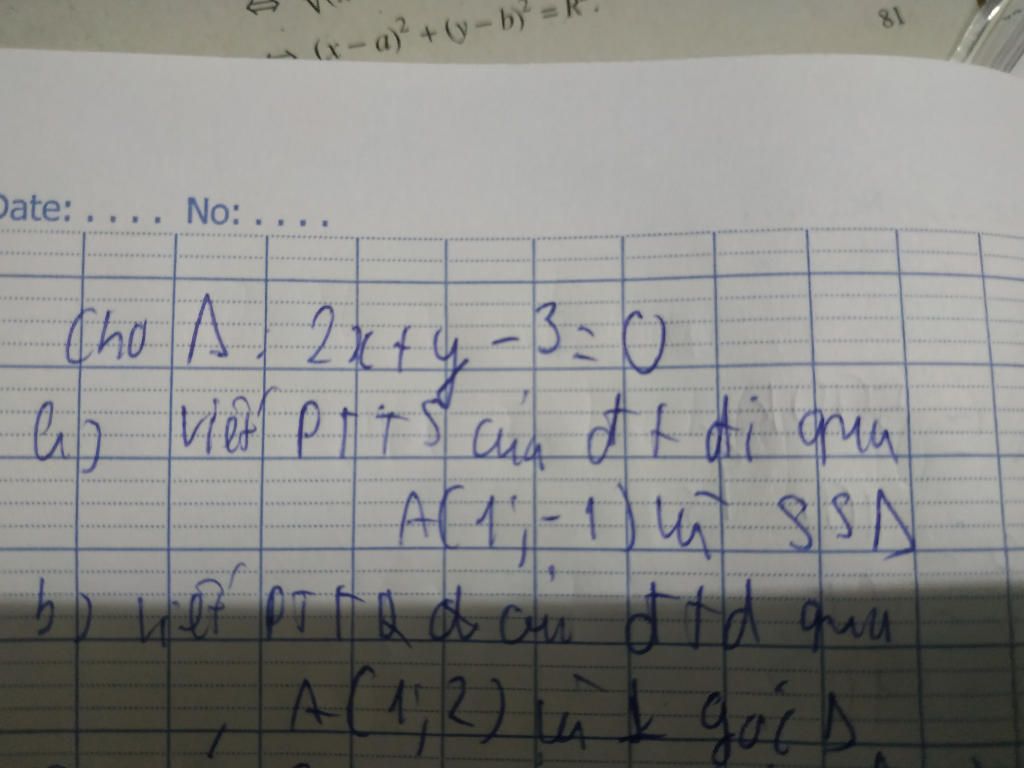 (x - a)² + (y - b)² = R².
81
Date: . . . . No: . . . .
Cho Δ: 2x + y - 3 = 0
a) viết PTTS của đt đi qua
A(1; -1) và SSΔ
b) viết PTTQ của đt d qua
A(1; 2) và ⊥ góc Δ